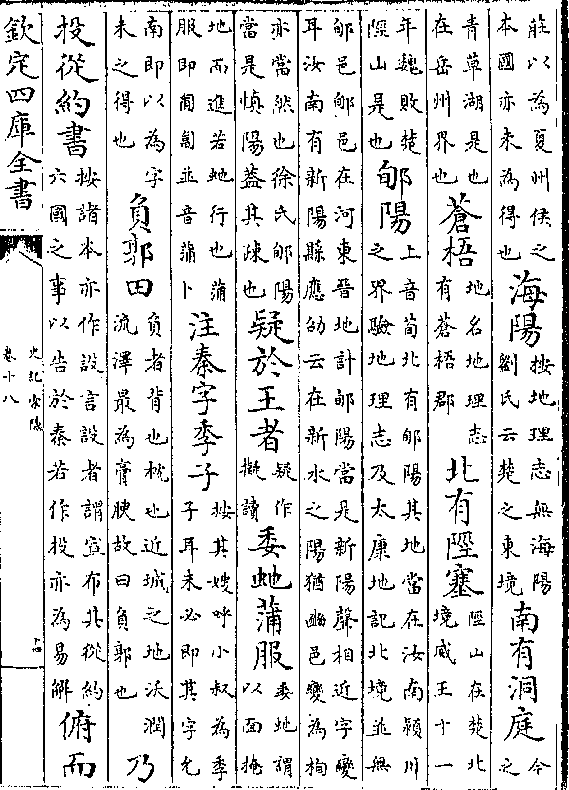 莊以為夏州侯之本國亦未為得也海陽按地理志無海陽劉氏云楚之東境南有洞庭今之
青草湖是也在岳州界也蒼梧地名地理志有蒼梧郡北有陘塞陘山在楚北境威王十一
年魏敗楚陘山是也郇陽上音荀北有郇陽其地當在汝南潁川之界驗地理志及太康地記北境並無
郇邑郇邑在河東晉地計郇陽當是新陽聲相近字變耳汝南有新陽縣應劭云在新水之陽猶豳邑變為栒
亦當然也徐氏郇陽當是慎陽蓋其疎也疑於王者疑作擬讀委虵蒲服委虵謂以面掩
地而進若虵行也蒲服即匍匐並音蒲卜注秦字季子按其嫂呼小叔為季子耳未必即其字允
南即以為字未之得也負郭田負者背也枕也近城之地沃潤流澤最為膏腴故曰負郭也乃
投從約書按諸本亦作設言設者謂宣布其從約六國之事以告於秦若作投亦為易解俯而
欽定四庫全書
史記索隱
卷十八